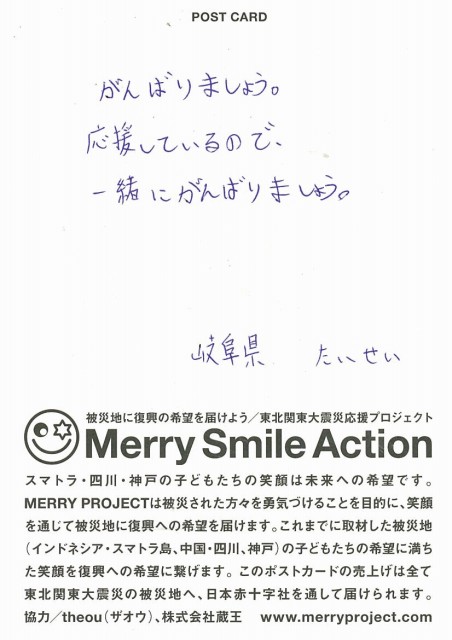 POST CARD
がんばりましょう。
応援しているので、
一緒にがんばりましょう。
岐阜県 たいせい
被災地に復興の希望を届けよう／東北関東大震災応援プロジェクト
Merry Smile Action
スマトラ・四川・神戸の子どもたちの笑顔は未来への希望です。
MERRY PROJECTは被災された方々を勇気づけることを目的に、笑顔
を通じて被災地に復興への希望を届けます。これまでに取材した被災地
（インドネシア・スマトラ島、中国・四川、神戸）の子どもたちの希望に満ち
た笑顔を復興への希望に繋げます。このポストカードの売上げは全て
東北関東大震災の被災地へ、日本赤十字社を通して届けられます。
協力／theou（ザオウ）、株式会社蔵王 www.merryproject.com